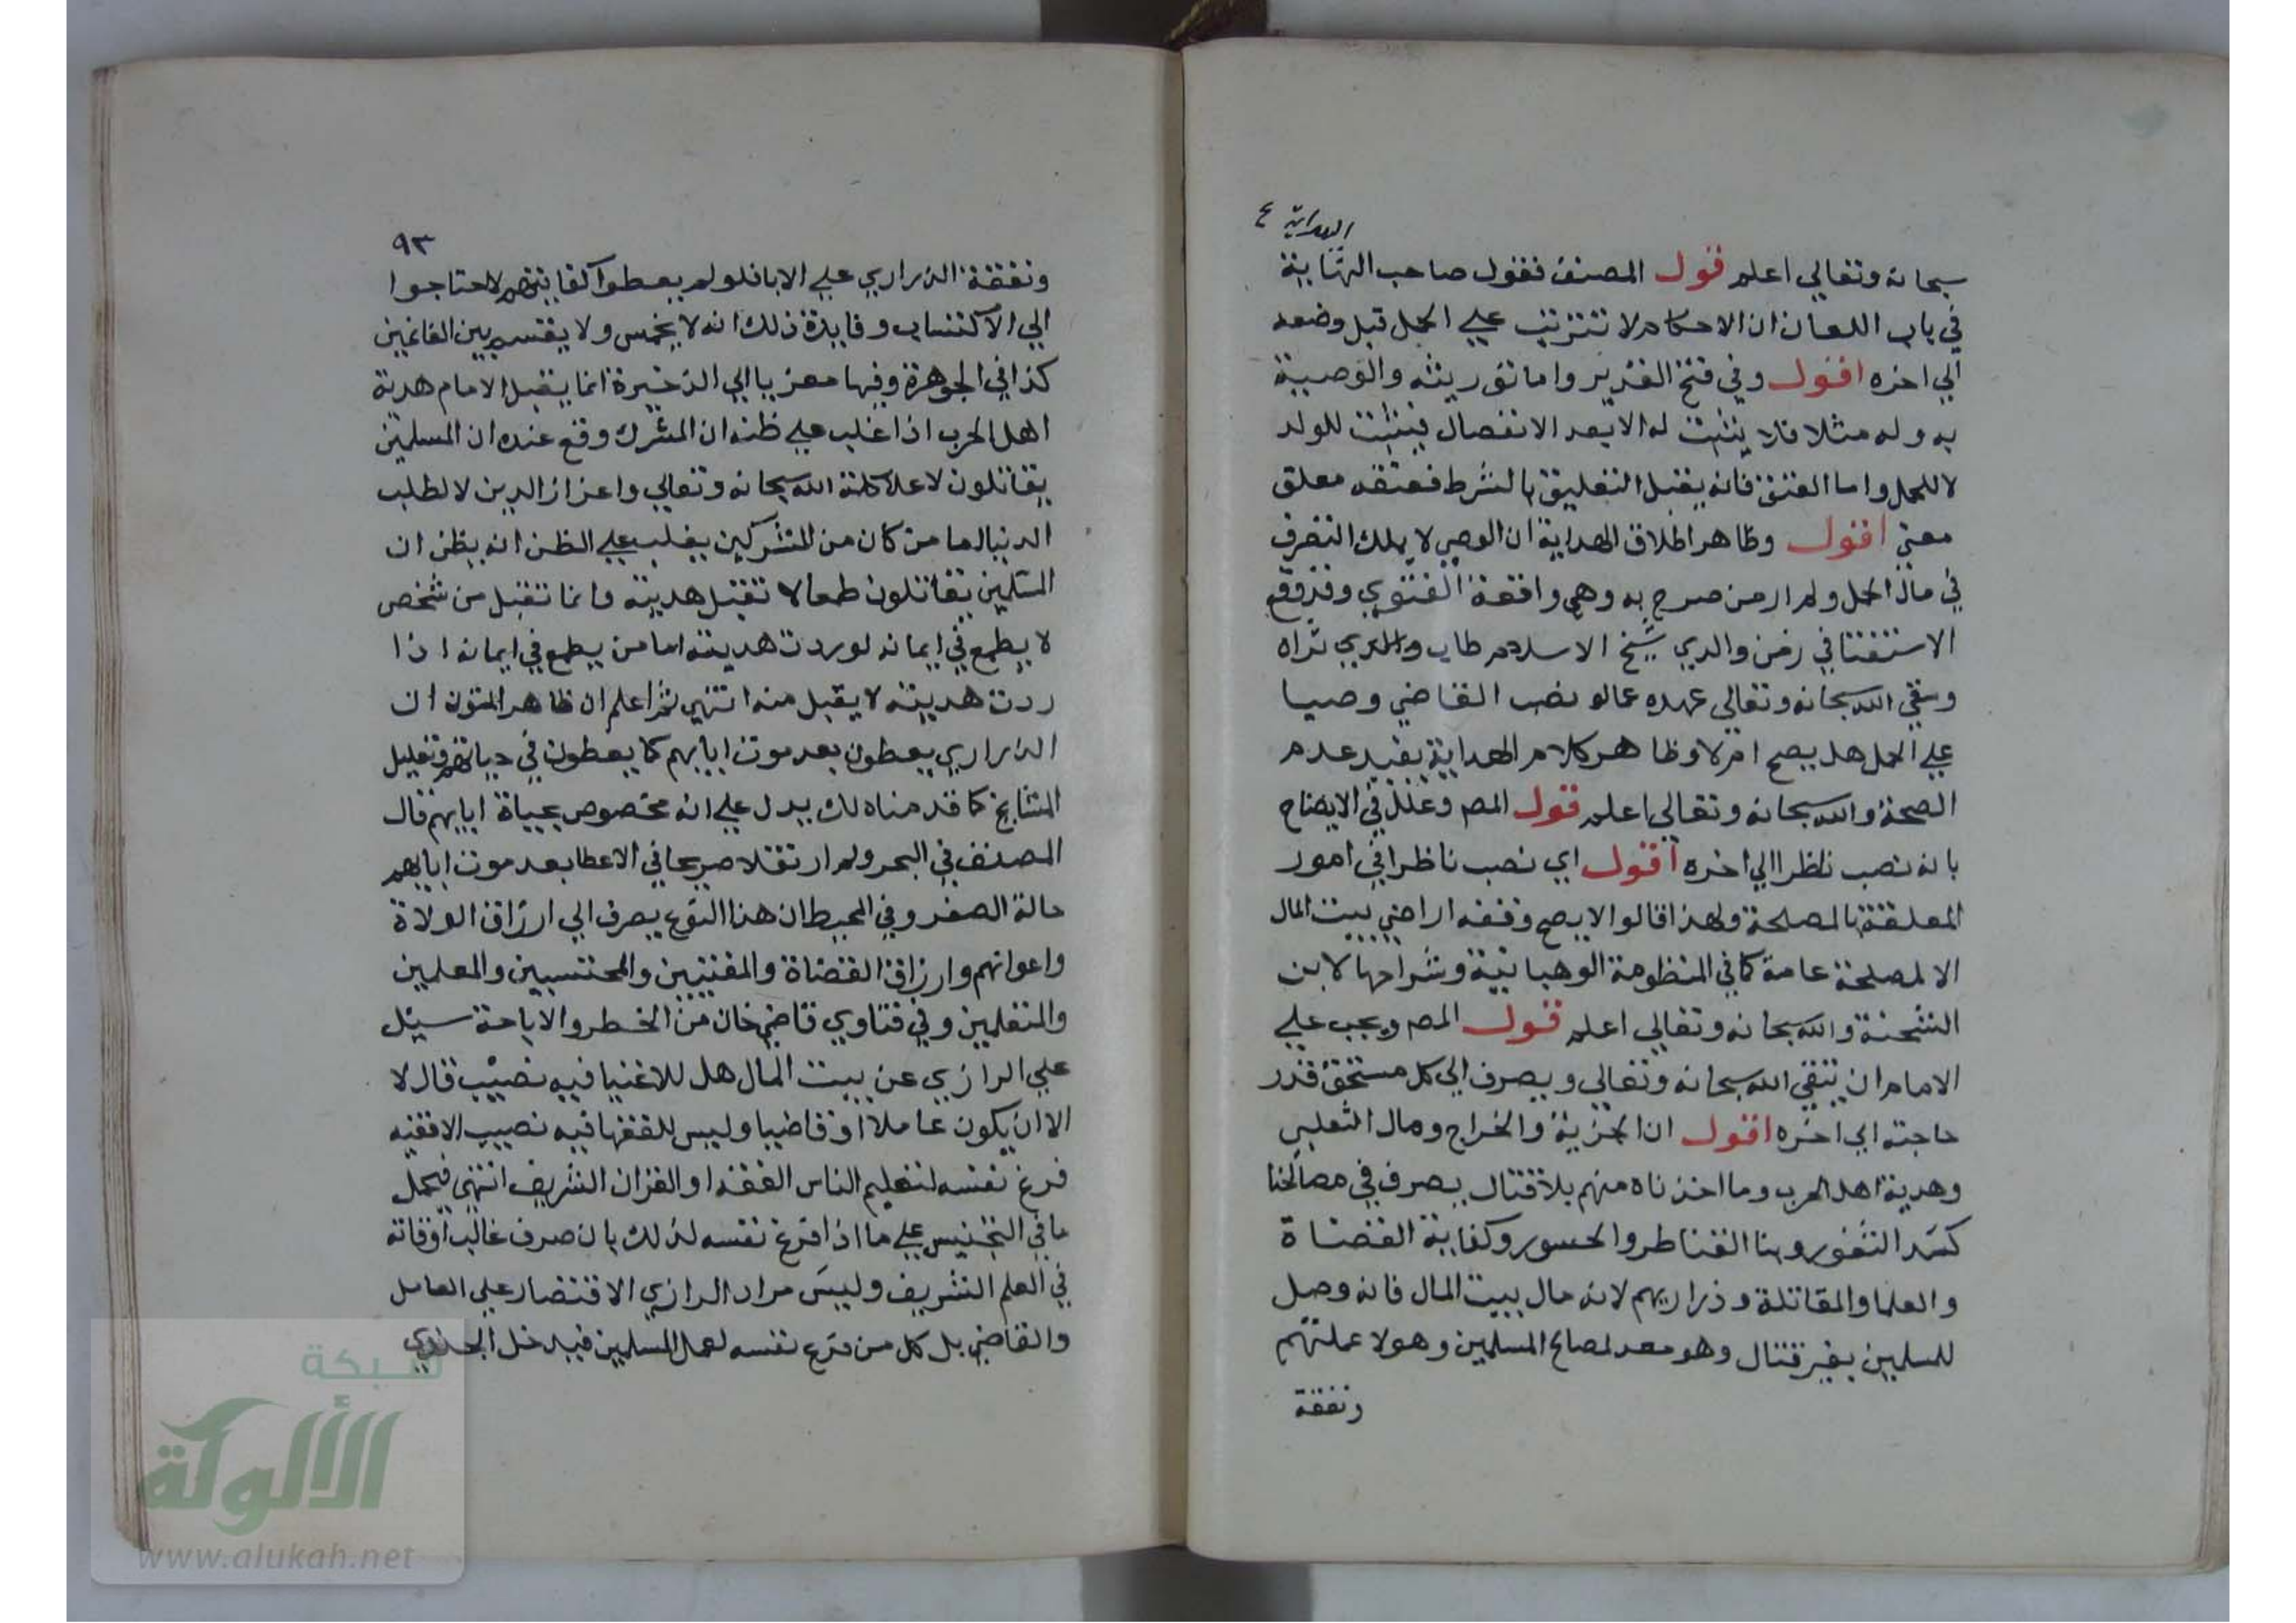 الهداية ع
سبحانه وتعالي اعلم قول المصنف فقول صاحب النهاية
في باب اللعان ان الاحكام لا تترتب علي الحمل قبل وضعه
الي اخره اقول وفي فتح القدير واما توريثه والوصية
به وله مثلا فلا يثبت له الا بعد الانفصال فيثبت للولد
لا للحمل واما العتق فانه يقبل التعليق بالشرط فعتقه معلق
معني اقول وظاهر اطلاق الهداية ان الوصي لا يملك التصرف
في مال الحمل ولم ار من صرح به وهي واقعة الفتوي وقد وقع
الاستفتا في زمن والدي شيخ الاسلام طاب والثري ثراه
وسقي الله سبحانه وتعالي عهده عما لو نصب القاضي وصيا
علي الحمل هل يصح ام لا وظاهر كلام الهداية يفيد عدم
الصحة والله سبحانه وتعالي اعلم قول المص وعلل في الايضاح
بانه نصب ناظرا الي اخره اقول اي نصب ناظرا في امور
المعلقة بالمصلحة ولهذا قالوا لا يصح وقفه اراضي بيت المال
الا لمصلحة عامة كما في المنظومة الوهبانية وشراحها لابن
الشحنة والله سبحانه وتعالي اعلم قول المص ويجب علي
الامام ان يتقي الله سبحانه وتعالي ويصرف الي كل مستحق قدر
حاجته الي اخره اقول ان الجزية والخراج ومال التغلبي
وهدية اهل الحرب وما اخذناه منهم بلا قتال يصرف في مصالحنا
كسد الثغور وبنا القناطر والجسور وكفاية القضاة
والعلما والمقاتلة وذراريهم لانه مال بيت المال فانه وصل
للمسلمين بغير قتال وهو معد لمصالح المسلمين وهولا عملتهم
ونفقة
٩٣
ونفقة الذراري علي الابا فلو لم يعطوا كفايتهم لاحتاجوا
الي الاكتساب وفايدة ذلك انه لا يخمس ولا يقسم بين الغانمين
كذا في الجوهرة وفيها معزيا الي الذخيرة انما يقبل الامام هدية
اهل الحرب اذا غلب علي ظنه ان المشرك وقع عنده ان المسلمين
يقاتلون لاعلا كلمة الله سبحانه وتعالي واعزاز الدين لا لطلب
الدنيا اما من كان من المشركين يغلب علي الظن انه يظن ان
المسلمين يقاتلون طمعا لا تقبل هديته وانما تقبل من شخص
لا يطمع في ايمانه لو ردت هديته اما من يطمع في ايمانه اذا
ردت هديته لا يقبل منه انتهي ثم اعلم ان ظاهر المتون ان
الذراري يعطون بعد موت ابايهم كما يعطون في حياتهم وتعليل
المشايخ كما قدمناه لك يدل علي انه مخصوص بحياة ابايهم قال
المصنف في البحر ولم ار نقلا صريحا في الاعطا بعد موت ابايهم
حالة الصغر وفي المحيط ان هذا النوع يصرف الي ارزاق الولاة
واعوانهم وارزاق القضاة والمفتيين والمحتسبين والمعلمين
والمتعلمين وفي فتاوي قاضي خان من الخطر والاباحة سيئل
علي الرازي عن بيت المال هل للاغنيا فيه نصيب قال لا
الا ان يكون عاملا او قاضيا وليس للفقها فيه نصيب الا فقيه
فرغ نفسه لتعليم الناس الفقه او القران الشريف انتهي فيحمل
ما في التجنيس علي ما اذا فرغ نفسه لذلك بان صرف غالب اوقاته
في العلم الشريف وليس مراد الرازي الاقتصار علي العامل
والقاضي بل كل من فرغ نفسه لعمل المسلمين فيدخل الجندي
شبكة
الألوكة
www.alukah.net